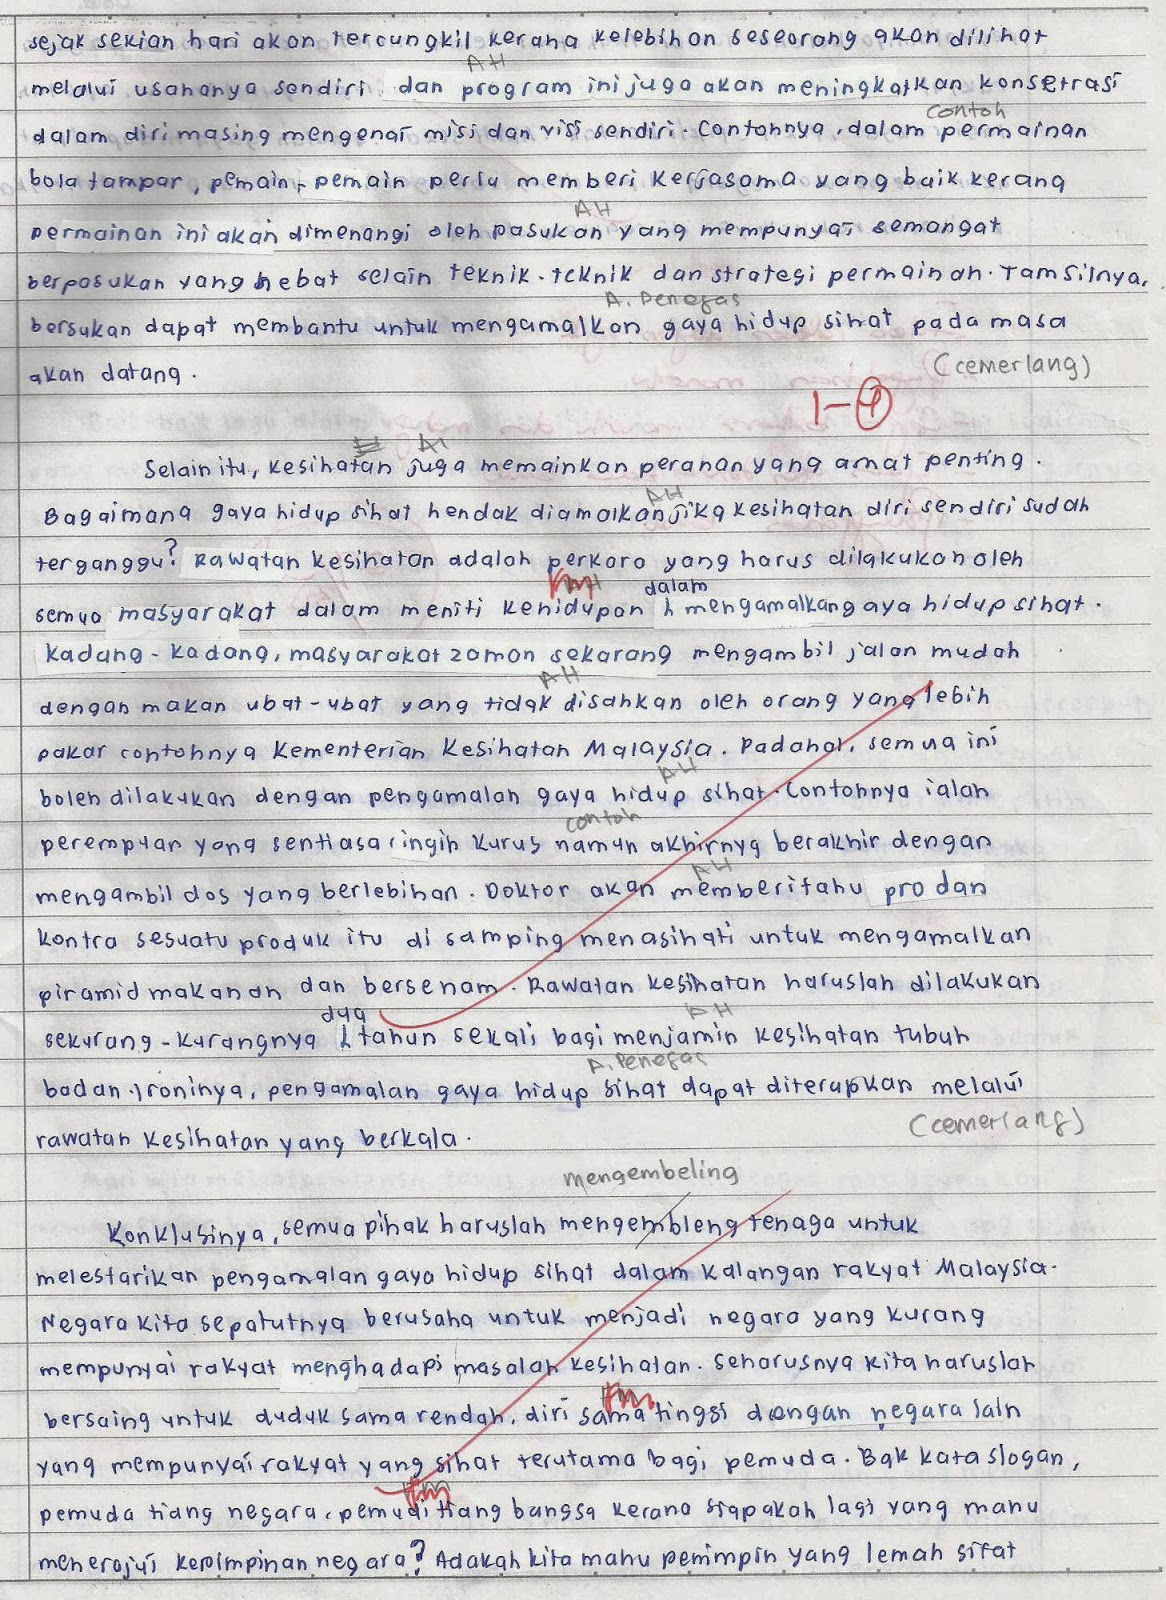 sejak sekian hari akan tercungkil kerana kelebihan seseorang akan dilihat
AH
melalui usahanya sendiri dan program ini juga akan meningkatkan konsetrasi
contoh
dalam diri masing mengenai misi dan visi sendiri. Contohnya, dalam permainan
bola tampar, pemain-pemain perlu memberi kerjasama yang baik kerana
AH
permainan ini akan dimenangi oleh pasukan yang mempunyai semangat
berpasukan yang hebat selain teknik-teknik dan strategi permainan. Tamsilnya,
A. Penegas
bersukan dapat membantu untuk mengamalkan gaya hidup sihat pada masa
akan datang.
(cemerlang)
AI
Selain itu, kesihatan juga memainkan peranan yang amat penting.
AH
Bagaimana gaya hidup sihat hendak diamalkan jika kesihatan diri sendiri sudah
terganggu? Rawatan kesihatan adalah perkara yang harus dilakukan oleh
fm AH dalam
semua masyarakat dalam meniti kehidupan mengamalkan gaya hidup sihat.
Kadang-kadang, masyarakat zaman sekarang mengambil jalan mudah
AH
dengan makan ubat-ubat yang tidak disahkan oleh orang yang lebih
pakar contohnya Kementerian Kesihatan Malaysia. Padahal, semua ini
AH
boleh dilakukan dengan pengamalan gaya hidup sihat. Contohnya ialah
contoh
perempuan yang sentiasa ingin kurus namun akhirnya berakhir dengan
AH
mengambil dos yang berlebihan. Doktor akan memberitahu pro dan
kontra sesuatu produk itu di samping menasihati untuk mengamalkan
piramid makanan dan bersenam. Rawatan kesihatan haruslah dilakukan
dua AH
sekurang-kurangnya tahun sekali bagi menjamin kesihatan tubuh
A. Penegas
badan. Ironinya, pengamalan gaya hidup sihat dapat diterapkan melalui
rawatan kesihatan yang berkala.
(cemerlang)
mengembeling
Konklusinya, semua pihak haruslah mengembleng tenaga untuk
melestarikan pengamalan gaya hidup sihat dalam kalangan rakyat Malaysia.
Negara kita sepatutnya berusaha untuk menjadi negara yang kurang
mempunyai rakyat menghadapi masalah kesihatan. Seharusnya kita haruslah
fm
bersaing untuk duduk sama rendah, diri sama tinggi dengan negara lain
yang mempunyai rakyat yang sihat terutama bagi pemuda. Bak kata slogan,
fm
pemuda tiang negara, pemudi tiang bangsa kerana siapakah lagi yang mahu
menerajui kepimpinan negara? Adakah kita mahu pemimpin yang lemah sifat